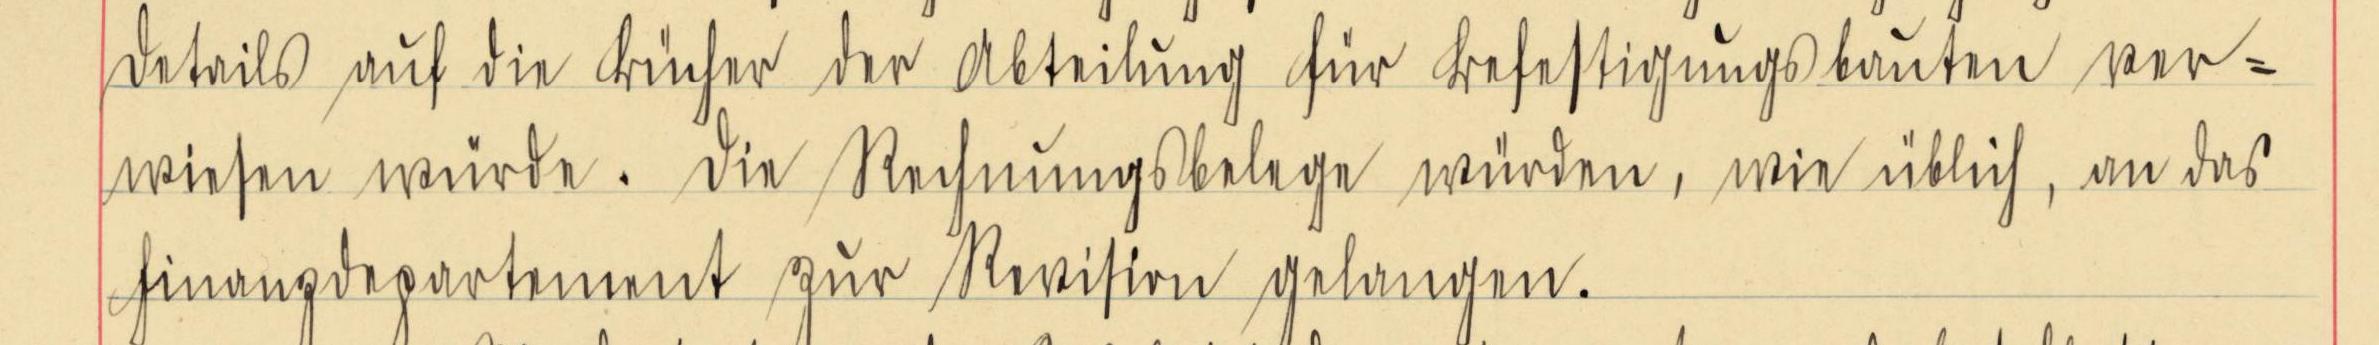 Details auf die Bücher der Abteilung für Befestigungsbauten ver=
wiesen würde. Die Rechnungsbelege würden, wie üblich, an das
Finanzdepartement zur Revision gelangen.